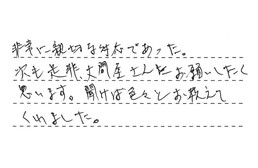 非常に親切な対応であった。
次も是非、大間屋さんをお願いしたく
思います。聞けば色々とお教えて
くれました。